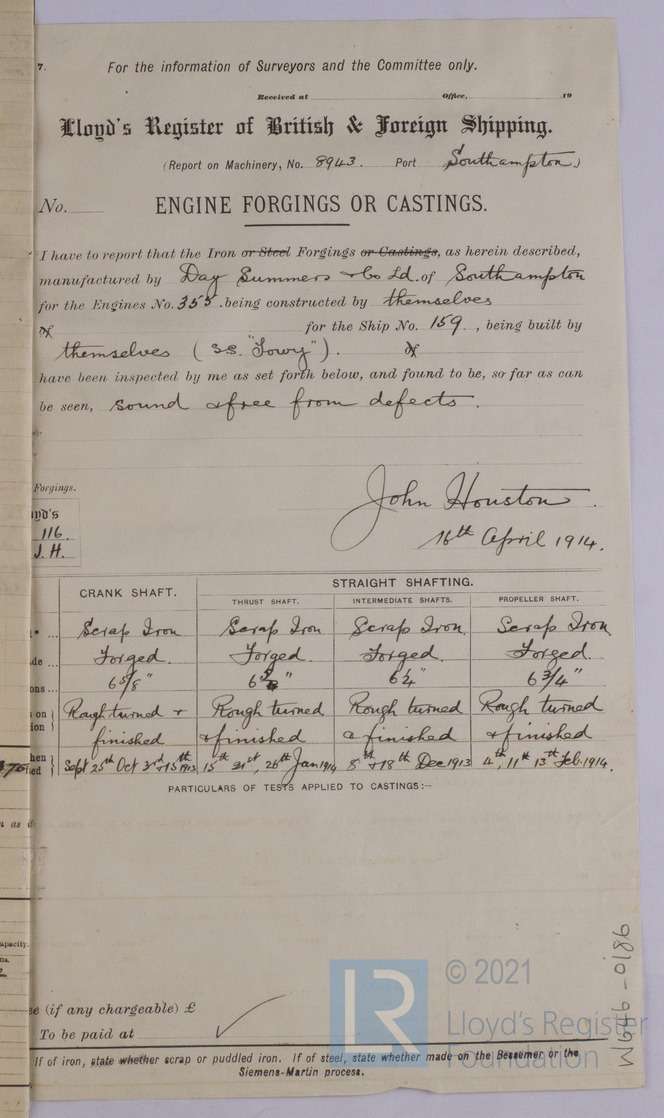 7.
For the information of Surveyors and the Committee only.
Received at Office, 19
Lloyd's Register of British & Foreign Shipping.
(Report on Machinery, No. 8943. Port Southampton)
No. ENGINE FORGINGS OR CASTINGS.
I have to report that the Iron or Steel Forgings or Castings, as herein described,
manufactured by Day Summers & Co Ld. of Southampton
for the Engines No. 355. being constructed by themselves
of for the Ship No. 159., being built by
themselves (S.S. "Towy"). of
have been inspected by me as set forth below, and found to be, so far as can
be seen, sound & free from defects.
John Houston.
16th April 1914.
Forgings.
116.
J.H.
CRANK SHAFT. STRAIGHT SHAFTING.
THRUST SHAFT. INTERMEDIATE SHAFTS. PROPELLER SHAFT.
Scrap Iron Scrap Iron Scrap Iron. Scrap Iron.
Forged. Forged. Forged. Forged.
6 5/8" 6 1/4" 6 3/4"
Rough turned + Rough turned Rough turned Rough turned
finished & finished & finished & finished
Sept 25th Oct 3rd & 15th 1913 15th 21st, 26th Jan 1914 8th & 18th Dec 1913 4th, 11th 13th Feb. 1914.
PARTICULARS OF TESTS APPLIED TO CASTINGS:—
(if any chargeable) £
To be paid at
If of iron, state whether scrap or puddled iron. If of steel, state whether made on the Bessemer or the
Siemens-Martin process.
W646-0186
LR
© 2021
Lloyd's Register
Foundation